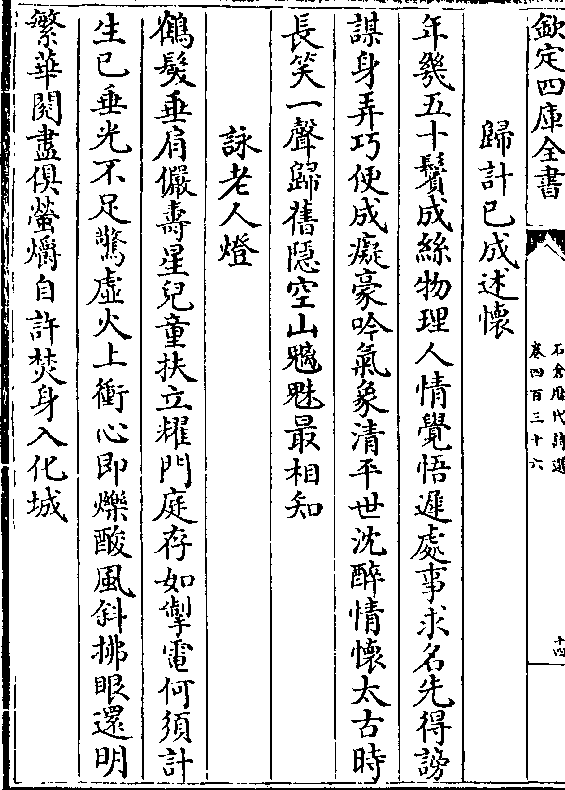 欽定四庫全書
石倉歷代詩選
卷四百三十六
十四
歸計已成述懷
年幾五十鬢成絲物理人情覺悟遲處事求名先得謗
謀身弄巧便成癡豪吟氣象清平世沈醉情懷太古時
長笑一聲歸舊隠空山魑魅最相知
詠老人燈
鶴髮垂肩儼壽星兒童扶立耀門庭存如掣電何須計
生已垂光不足驚虛火上衝心即爍酸風斜拂眼還明
繁華閱盡俱螢爝自許焚身入化城